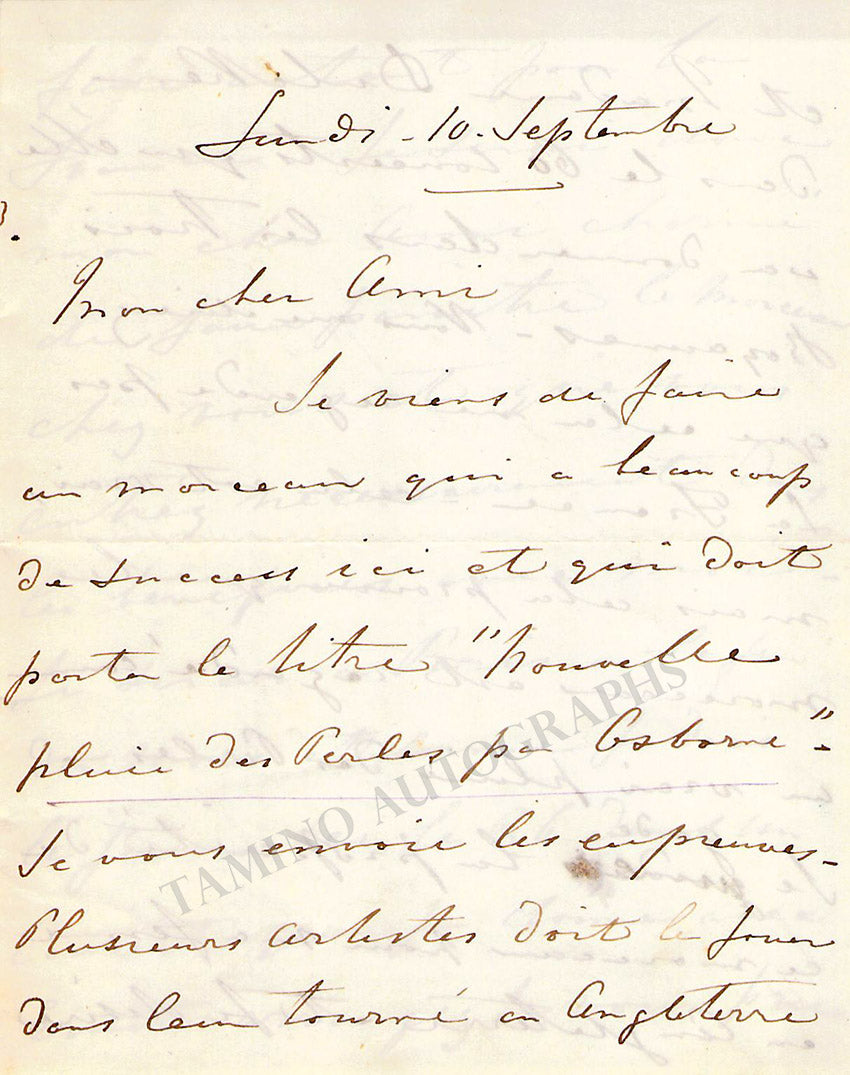 Lundi - 10 - Septembre
Mon cher Ami
Je viens de faire
un morceau qui a beaucoup
de success ici et qui doit
porter le titre "Nouvelle
pluie des Perles par Osborne".
Je vous envoie les eupreuves -
Plusieurs artistes doit le jouer
dans leur tourné en Angleterre
TAMINO AUTOGRAPHS